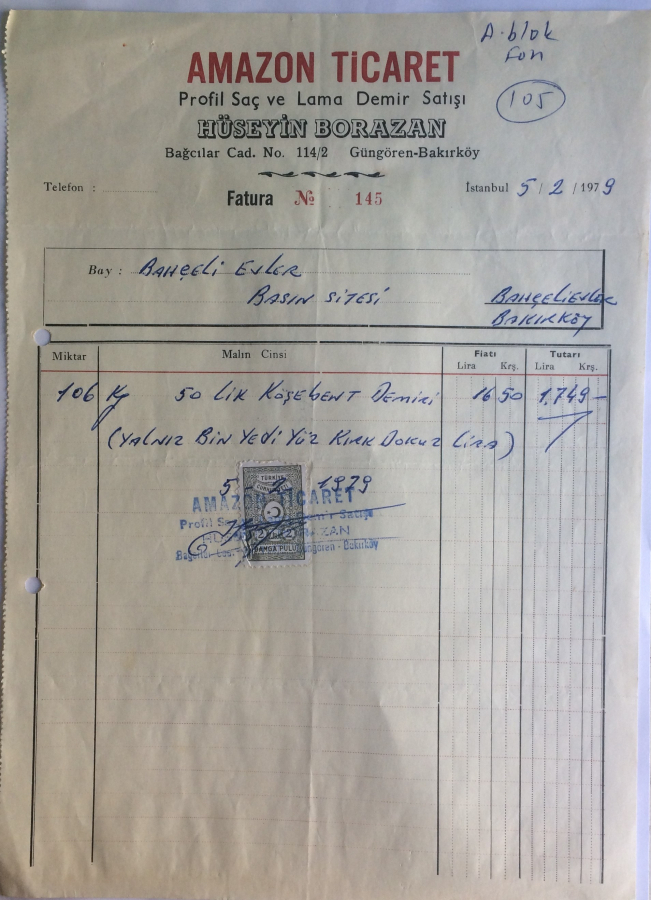 A.blok
Fon
105
AMAZON TİCARET
Profil Saç ve Lama Demir Satışı
HÜSEYİN BORAZAN
Bağcılar Cad. No. 114/2 Güngören-Bakırköy
Telefon :
Fatura № 145
İstanbul 5/2/1979
Bay : BAHÇELİ EVLER
BASIN SİTESİ
BAHÇELİEVLER
BAKIRKÖY
Miktar Malın Cinsi Fiatı Tutarı
Lira Krş. Lira Krş.
106 Kg 50 LİK KÖŞEBENT DEMİRİ 16 50 1.749-
(YALNIZ BİN YEDİ YÜZ KIRK DOKUZ LİRA)
5 2 1979
TÜRKİYE
CUMHURİYETİ
AMAZON TİCARET
Profil Demir Satışı
DAMGA PULU
Güngören - Bakırköy